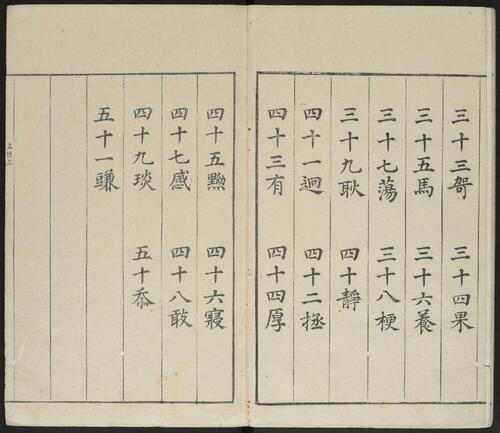 三十三哿 三十四果
三十五馬 三十六養
三十七蕩 三十八梗
三十九耿 四十靜
四十一迥 四十二拯
四十三有 四十四厚
四十五黝 四十六寑
四十七感 四十八敢
四十九琰 五十忝
五十一豏
上目三